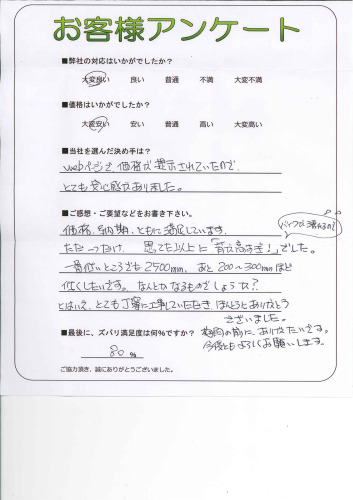 お客様アンケート
■弊社の対応はいかがでしたか？
大変良い 良い 普通 不満 大変不満
■価格はいかがでしたか？
大変安い 安い 普通 高い 大変高い
■当社を選んだ決め手は？
webページで、価格が提示されていたので
とても安心感がありました。
■ご感想・ご要望などをお書き下さい。
価格、納期、ともに満足しています。
バイクが濡れるので
ただ一つだけ、思ってた以上に「背が高すぎ！」でした。
一番低いところでも2500mm、あと200～300mmほど
低くしたいです。なんとかなるものでしょうか？
とはいえ、とても丁寧に工事していただき、ほんとうにありがとう
ございました。
■最後に、ズバリ満足度は何％ですか？
梅雨の前に、ありがたいです。
今後ともよろしくお願いします。
80 %
ご協力頂き、誠にありがとうございました。